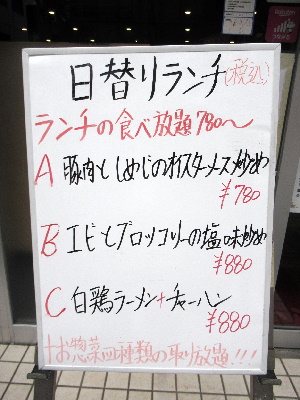 日替りランチ(税込)
ランチの食べ放題780〜
A 豚肉としめじのオイスターソース炒め
¥780
B エビとブロッコリーの塩味炒め
¥880
C 白鶏ラーメン+チャーハン
¥880
+お惣菜四種類の取り放題!!!